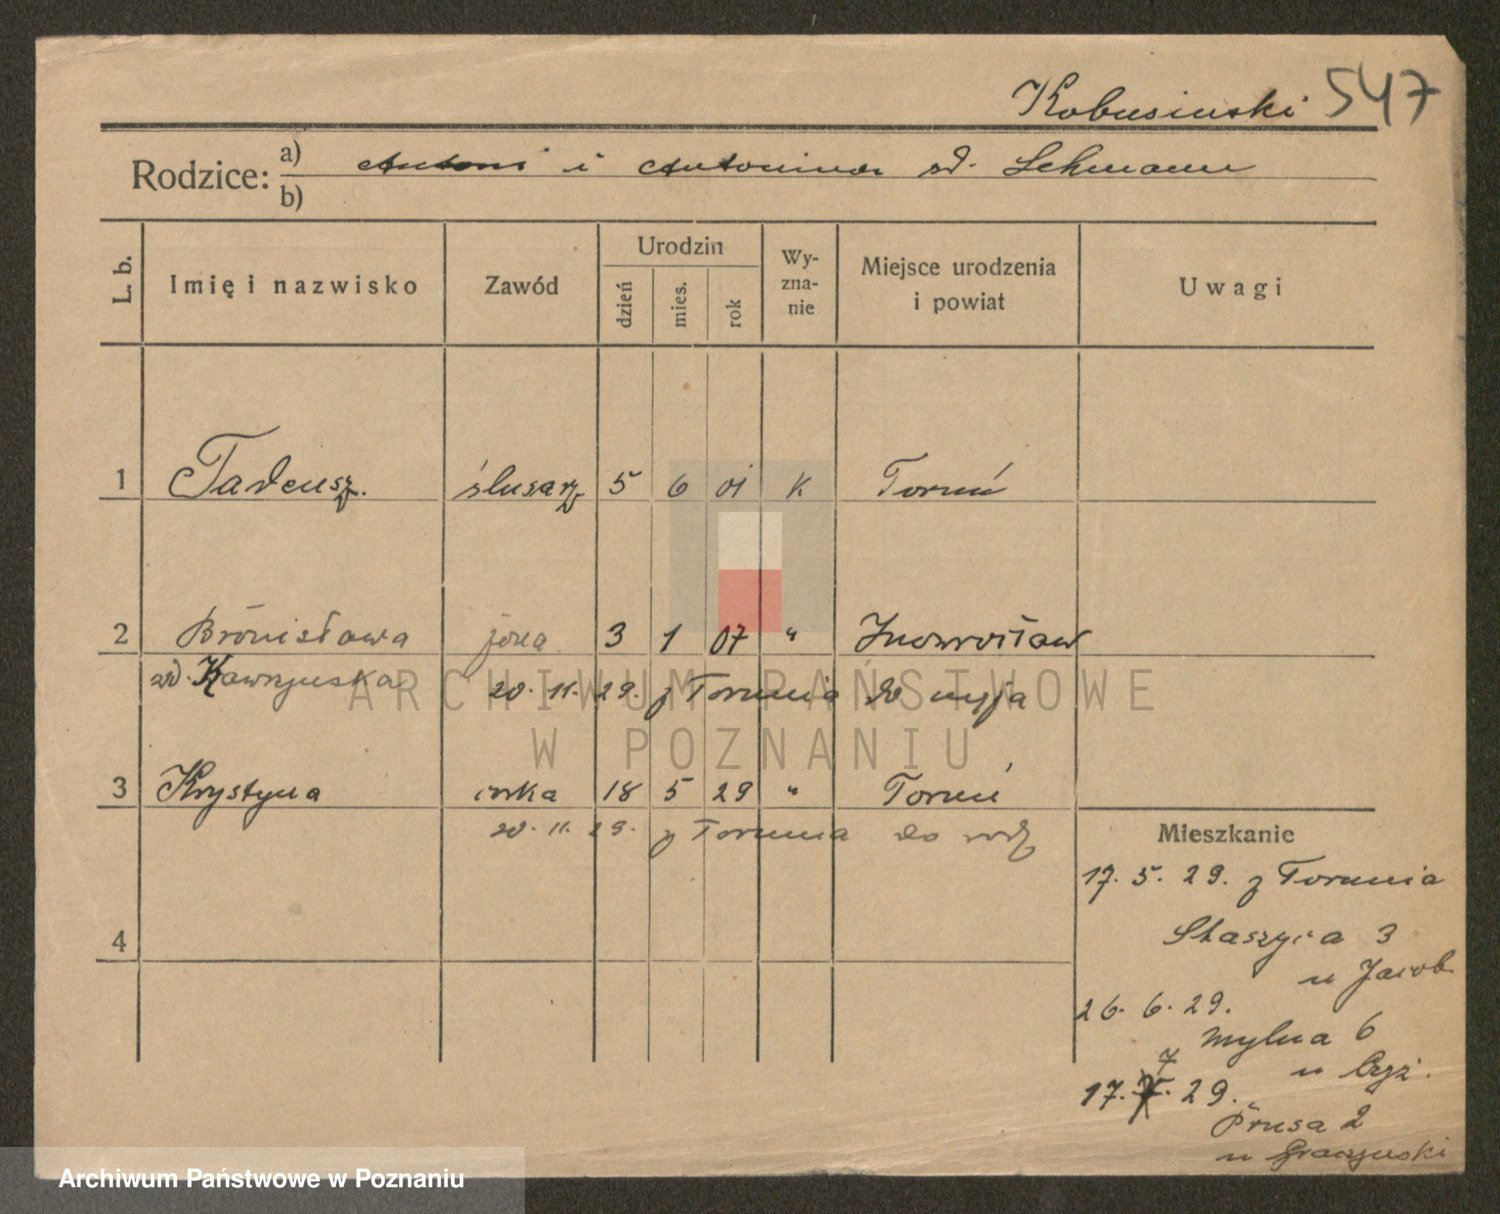 Kobusiński 547
Rodzice: a) Antoni i Antonina zd. Lehmann
b)
L. b. Imię i nazwisko Zawód Urodzin dzień mies. rok Wyznanie Miejsce urodzenia i powiat Uwagi
1 Tadeusz. ślusarz 5 6 01 K Toruń
2 Bronisława żona 3 1 07 " Inowrocław
zd. Kawczyńska 20. 11. 29. z Torunia do męża
3 Krystyna córka 18 5 29 " Toruń
20. 11. 29. z Torunia do rodz
4
Mieszkanie
17. 5. 29. z Torunia
Staszyca 3
u Jacob
26. 6. 29.
Mylna 6
u Czyż.
7
17. 29.
Prusa 2
u
ARCHIWUM PAŃSTWOWE
W POZNANIU
Archiwum Państwowe w Poznaniu